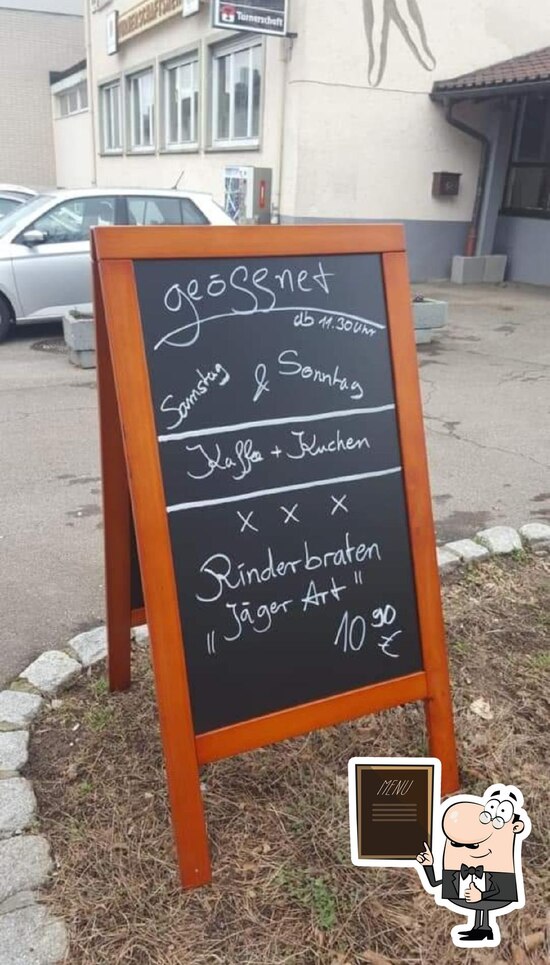 Turnerschaft
geöffnet
ab 11.30 Uhr
Samstag & Sonntag
Kaffee + Kuchen
x x x
Rinderbraten
„Jäger Art"
10 90 €
MENU